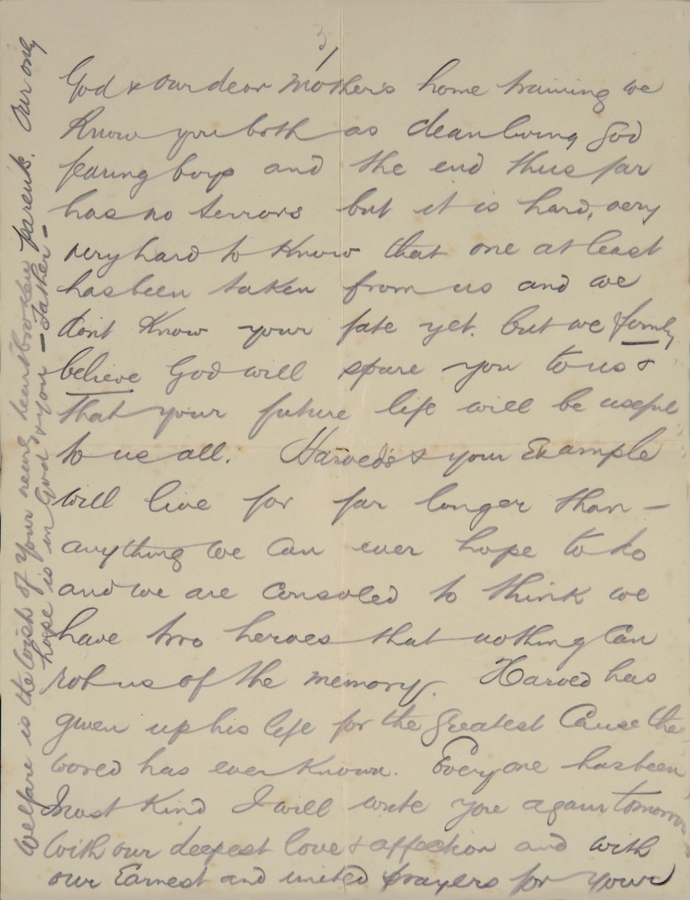 3/
God & our dear Mothers home training we
Know you both as clean living God
fearing boys and the end thus far
has no terrors but it is hard, very
very hard to Know that one at least
has been taken from us and we
dont Know your fate yet. but we firmly
believe God will spare you to us &
that your future life will be useful
to us all. Harveds & your Example
will live for far longer than —
anything we can ever hope to do
and we are consoled to think we
have two heroes that nothing Can
rob us of the memory. Harved has
given up his life for the Greatest Cause the
World has ever Known. Every one has been
Most Kind I will write you again tomorrow
With our deepest love & affection and with
our Earnest and united prayers for your
Welfare is the wish of your heartbroken parents. Our only
hope is in God & you — Father —